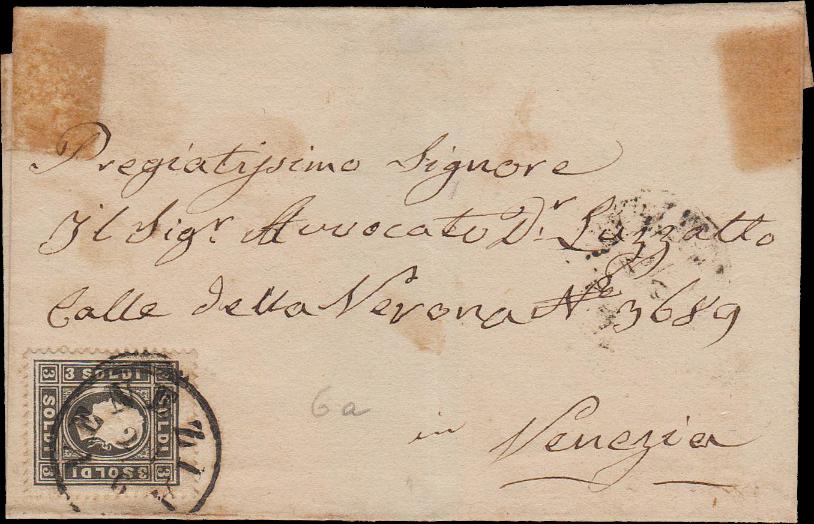 Pregiatissimo Signore
Il Sigr. Avvocato Dr. Luzzatto
Calle della Verona No 3689
in Venezia
6a
3 SOLDI
SOLDI
SOLDI
3 SOLDI
VENEZIA